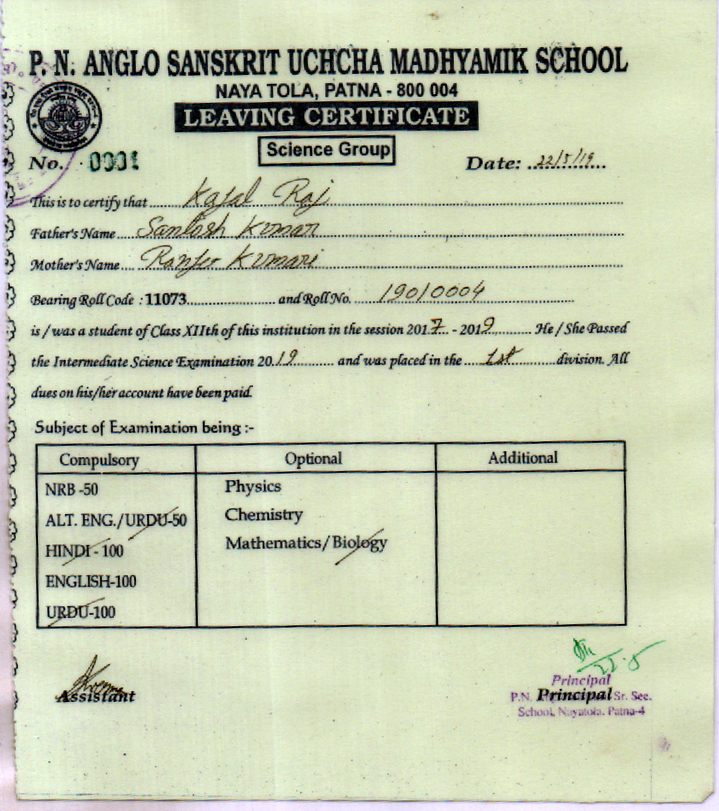 P. N. ANGLO SANSKRIT UCHCHA MADHYAMIK SCHOOL
NAYA TOLA, PATNA - 800 004
LEAVING CERTIFICATE
Science Group
No. 0001 Date: 22/5/19
This is to certify that Kajal Raj
Father's Name Santosh Kumar
Mother's Name Ranju Kumari
Bearing Roll Code : 11073 and Roll No. 19010004
is / was a student of Class XIIth of this institution in the session 2017 - 2019 He / She Passed
the Intermediate Science Examination 2019 and was placed in the 1st division. All
dues on his/her account have been paid.
Subject of Examination being :-
Compulsory Optional Additional
NRB -50 Physics
ALT. ENG./URDU-50 Chemistry
HINDI - 100 Mathematics/Biology
ENGLISH-100
URDU-100
22-5
Assistant
Principal
P.N. Principal Sr. Sec.
School, Nayatola, Patna-4